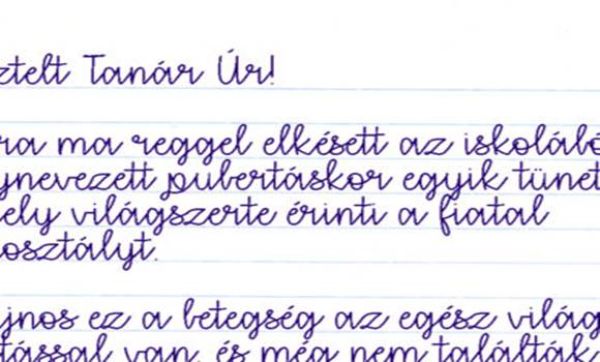 ztelt Tanár Úr!
ra ma reggel elkésett az iskolábó
ynevezett pubertáskor egyik tünet
ely világszerte érinti a fiatal
osztályt.
jnos ez a betegség az egész világ
tással van, és még nem találták